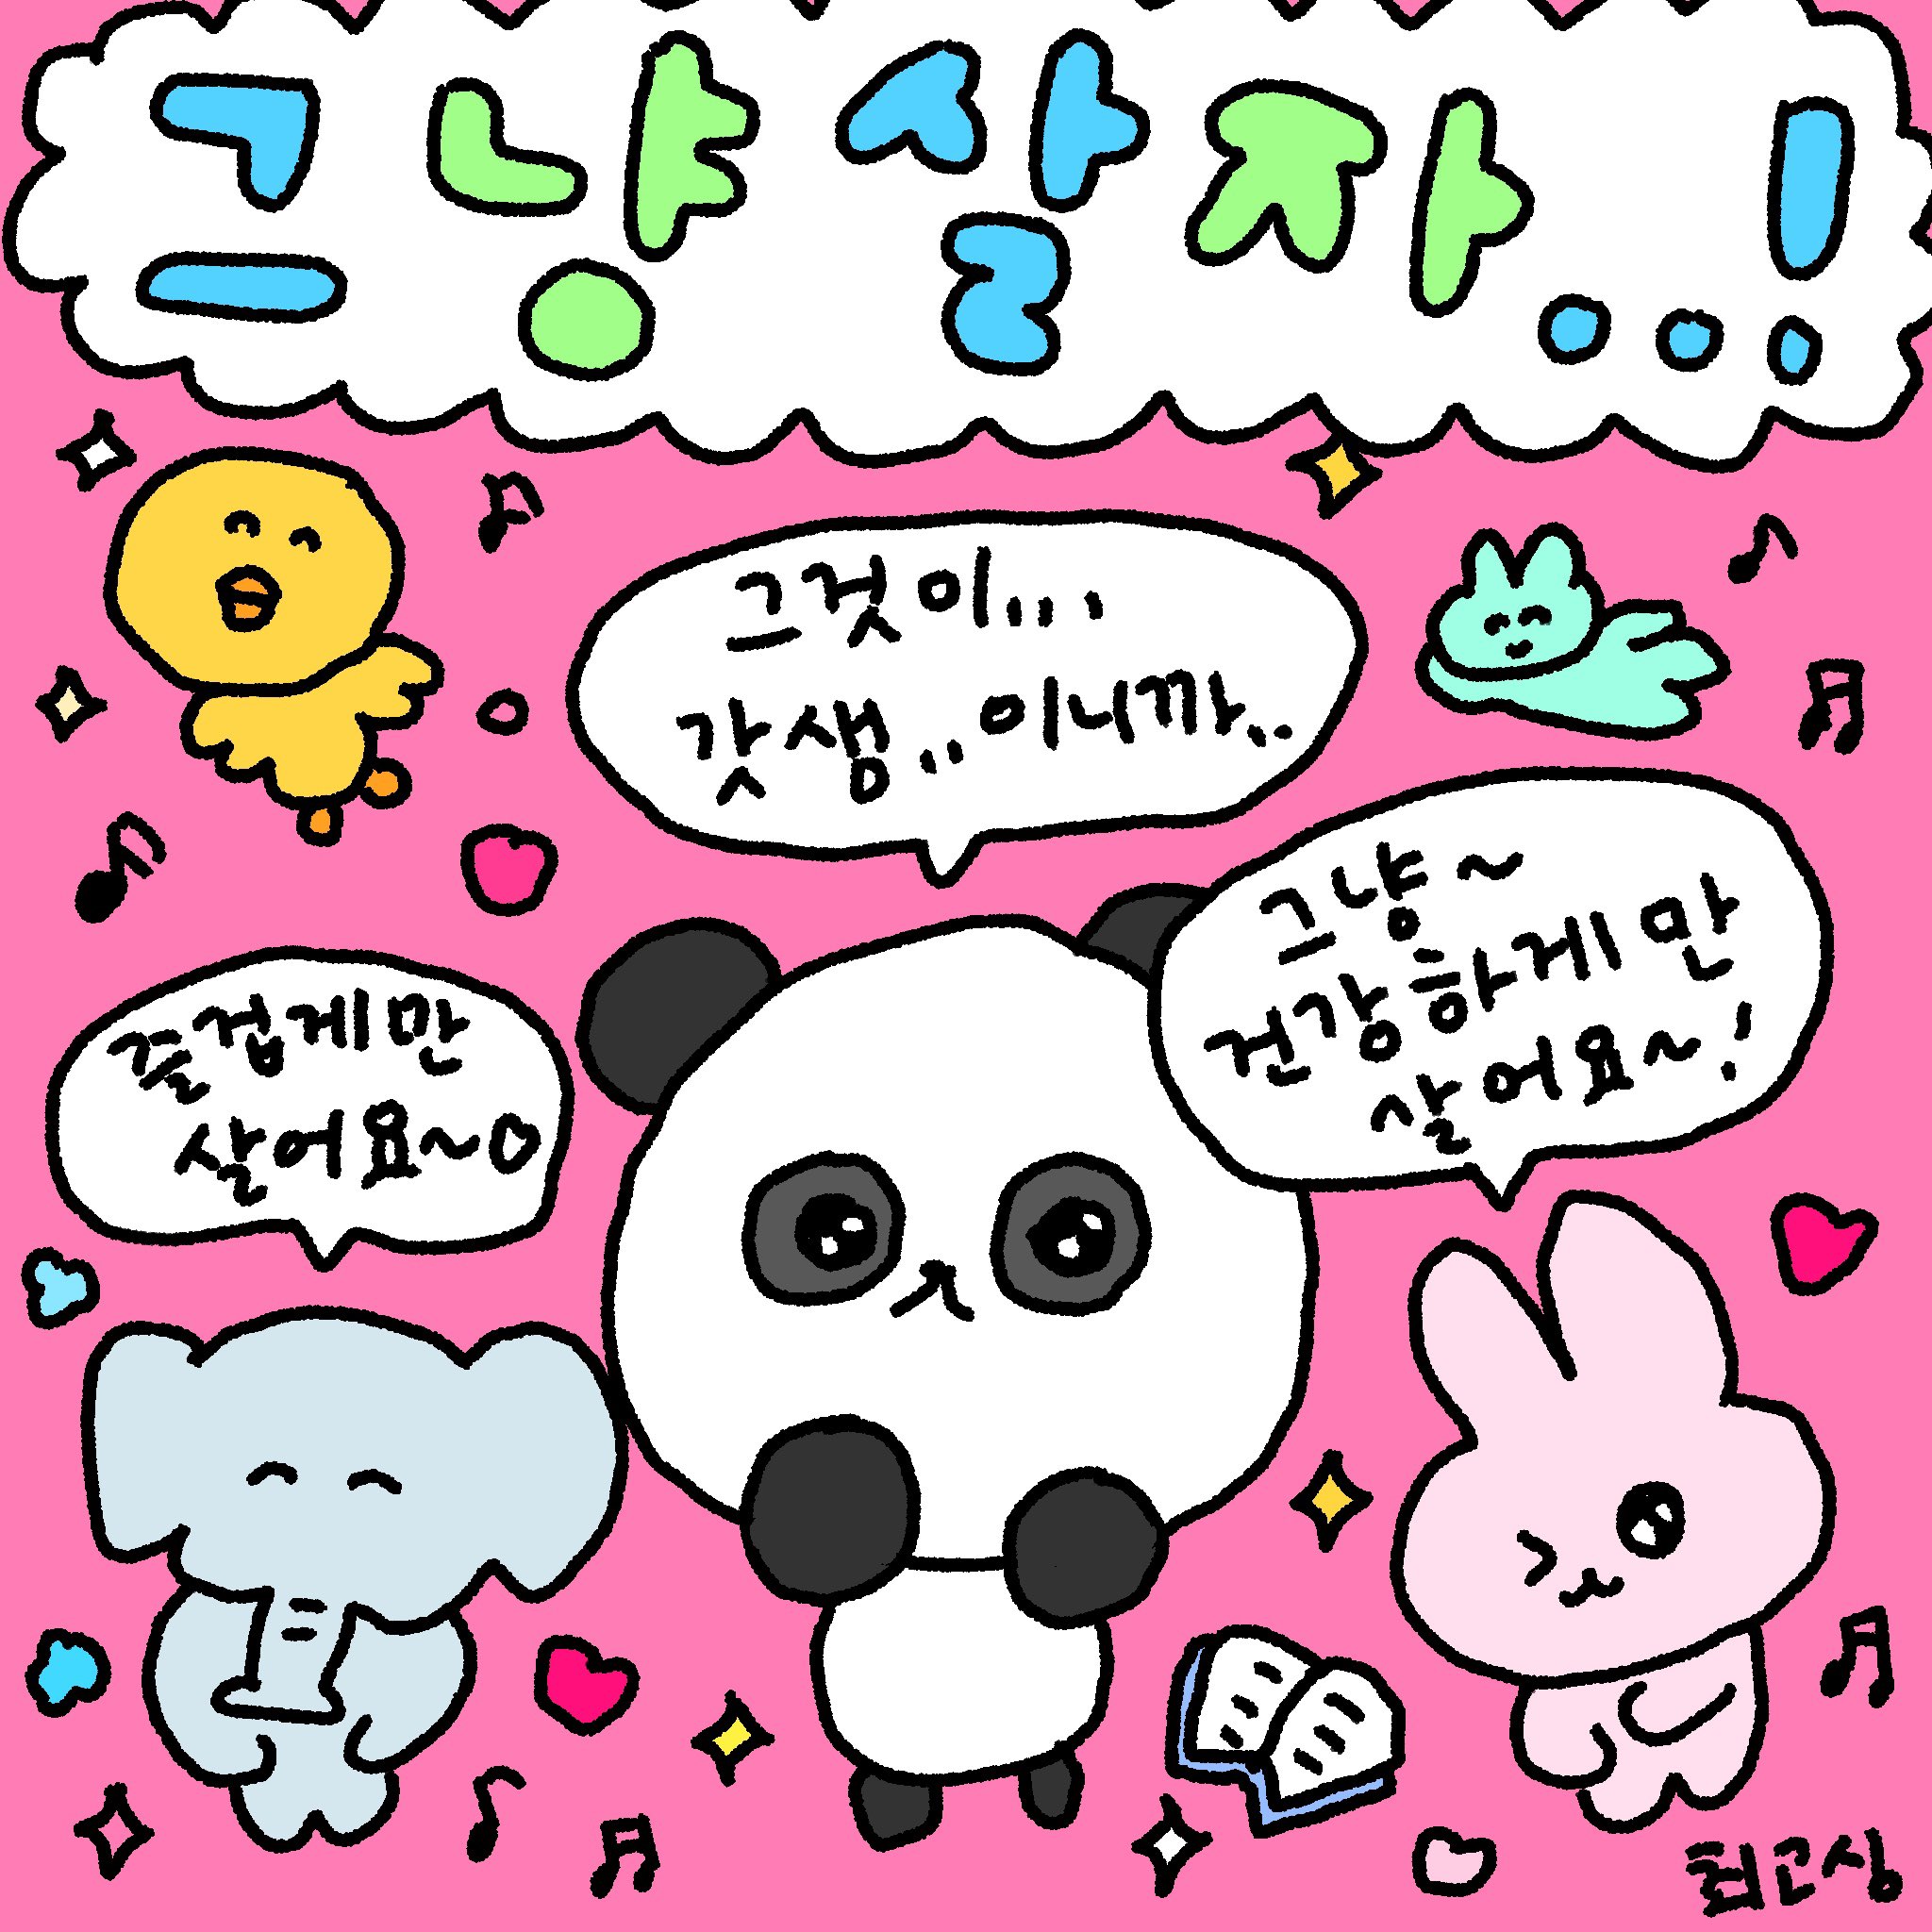 그냥 살자...!
그것이...
갓생..이니까..
그냥~
건강하게만
살어요~!
즐겁게만
살어요~♡
최고심